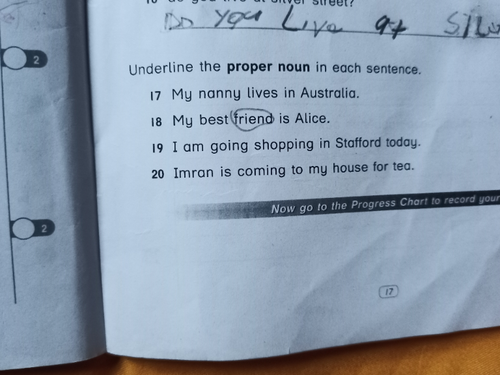 do you live at silver street?
Do you Live at
2
Underline the proper noun in each sentence.
17 My nanny lives in Australia.
18 My best friend is Alice.
19 I am going shopping in Stafford today.
20 Imran is coming to my house for tea.
2
Now go to the Progress Chart to record your
17